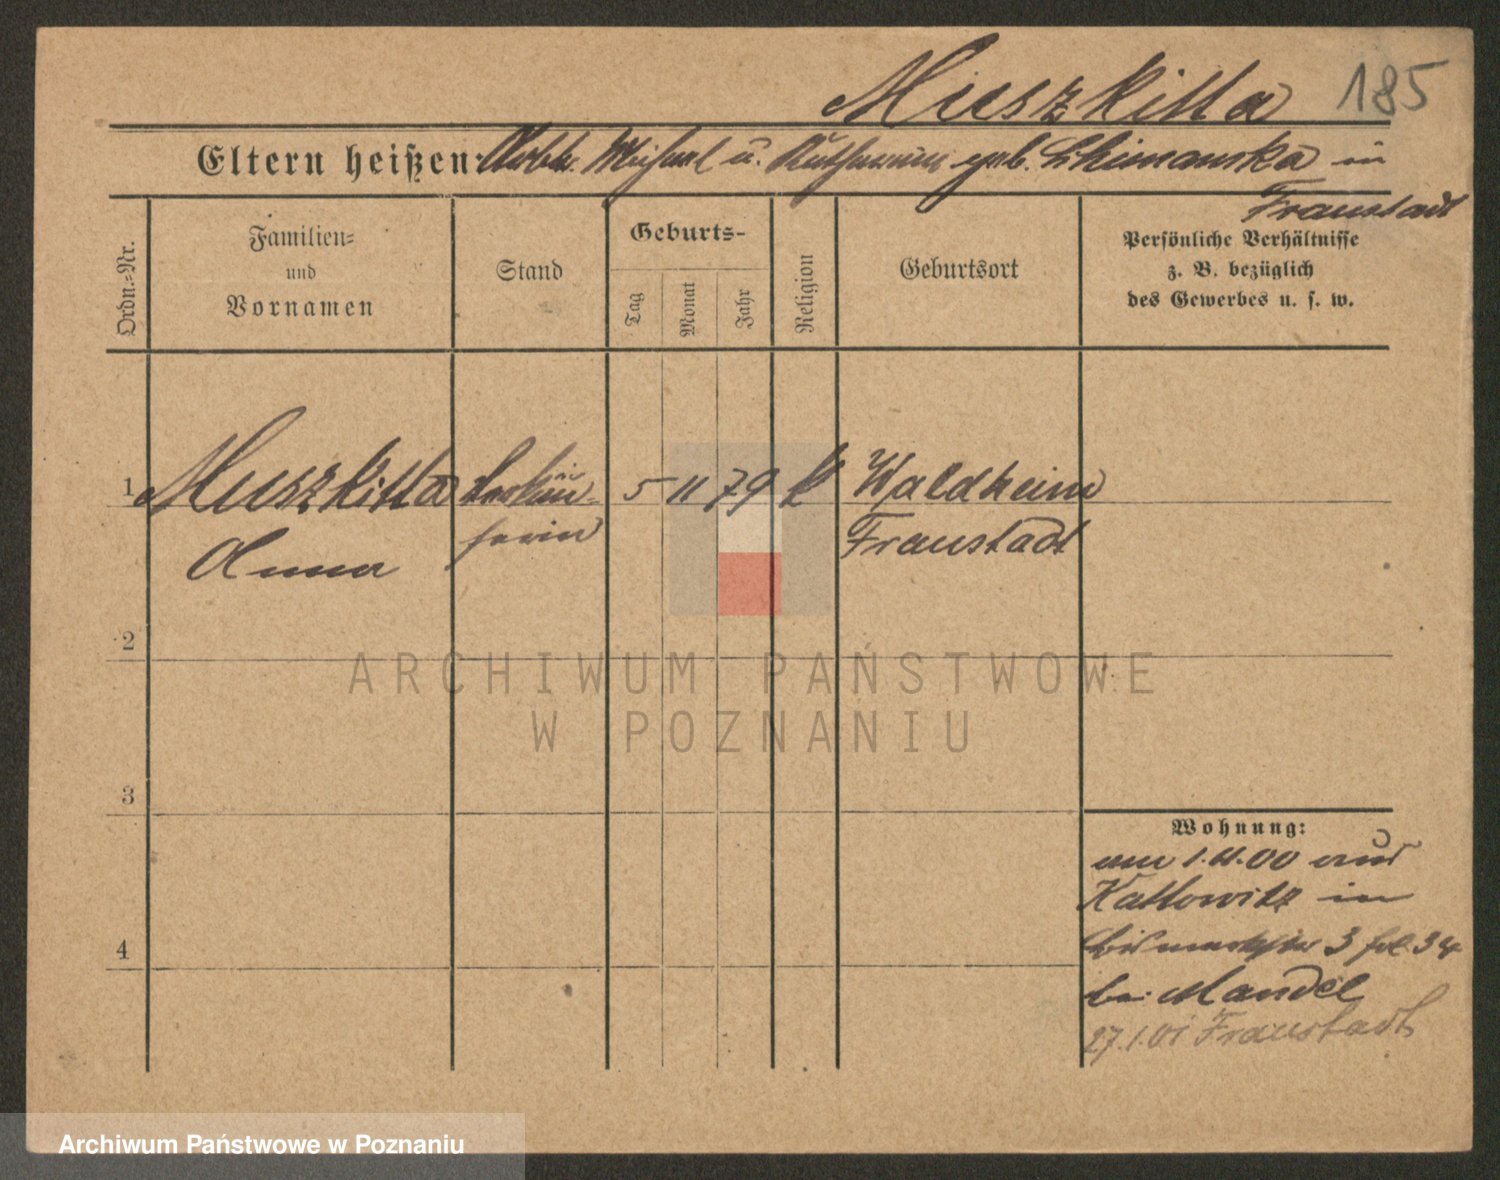 Muszkitta 185
Eltern heißen: Arbtr. Michael u. Katharina geb. Schimanska in
Fraustadt
Ordn.-Nr.
Familien-
und
Vornamen
Stand
Geburts-
Tag
Monat
Jahr
Religion
Geburtsort
Persönliche Verhältnisse
z. B. bezüglich
des Gewerbes u. s. w.
1 Muszkitta Verkäu- 5 11 79 k Waldheim
Anna ferin Fraustadt
2
ARCHIWUM PAŃSTWOWE
W POZNANIU
3
Wohnung:
am 1.11.00 aus
Kattowitz in
Bismarckstr 3 fol. 34
4
bei Mandel
27.1.01 Fraustadt
Archiwum Państwowe w Poznaniu